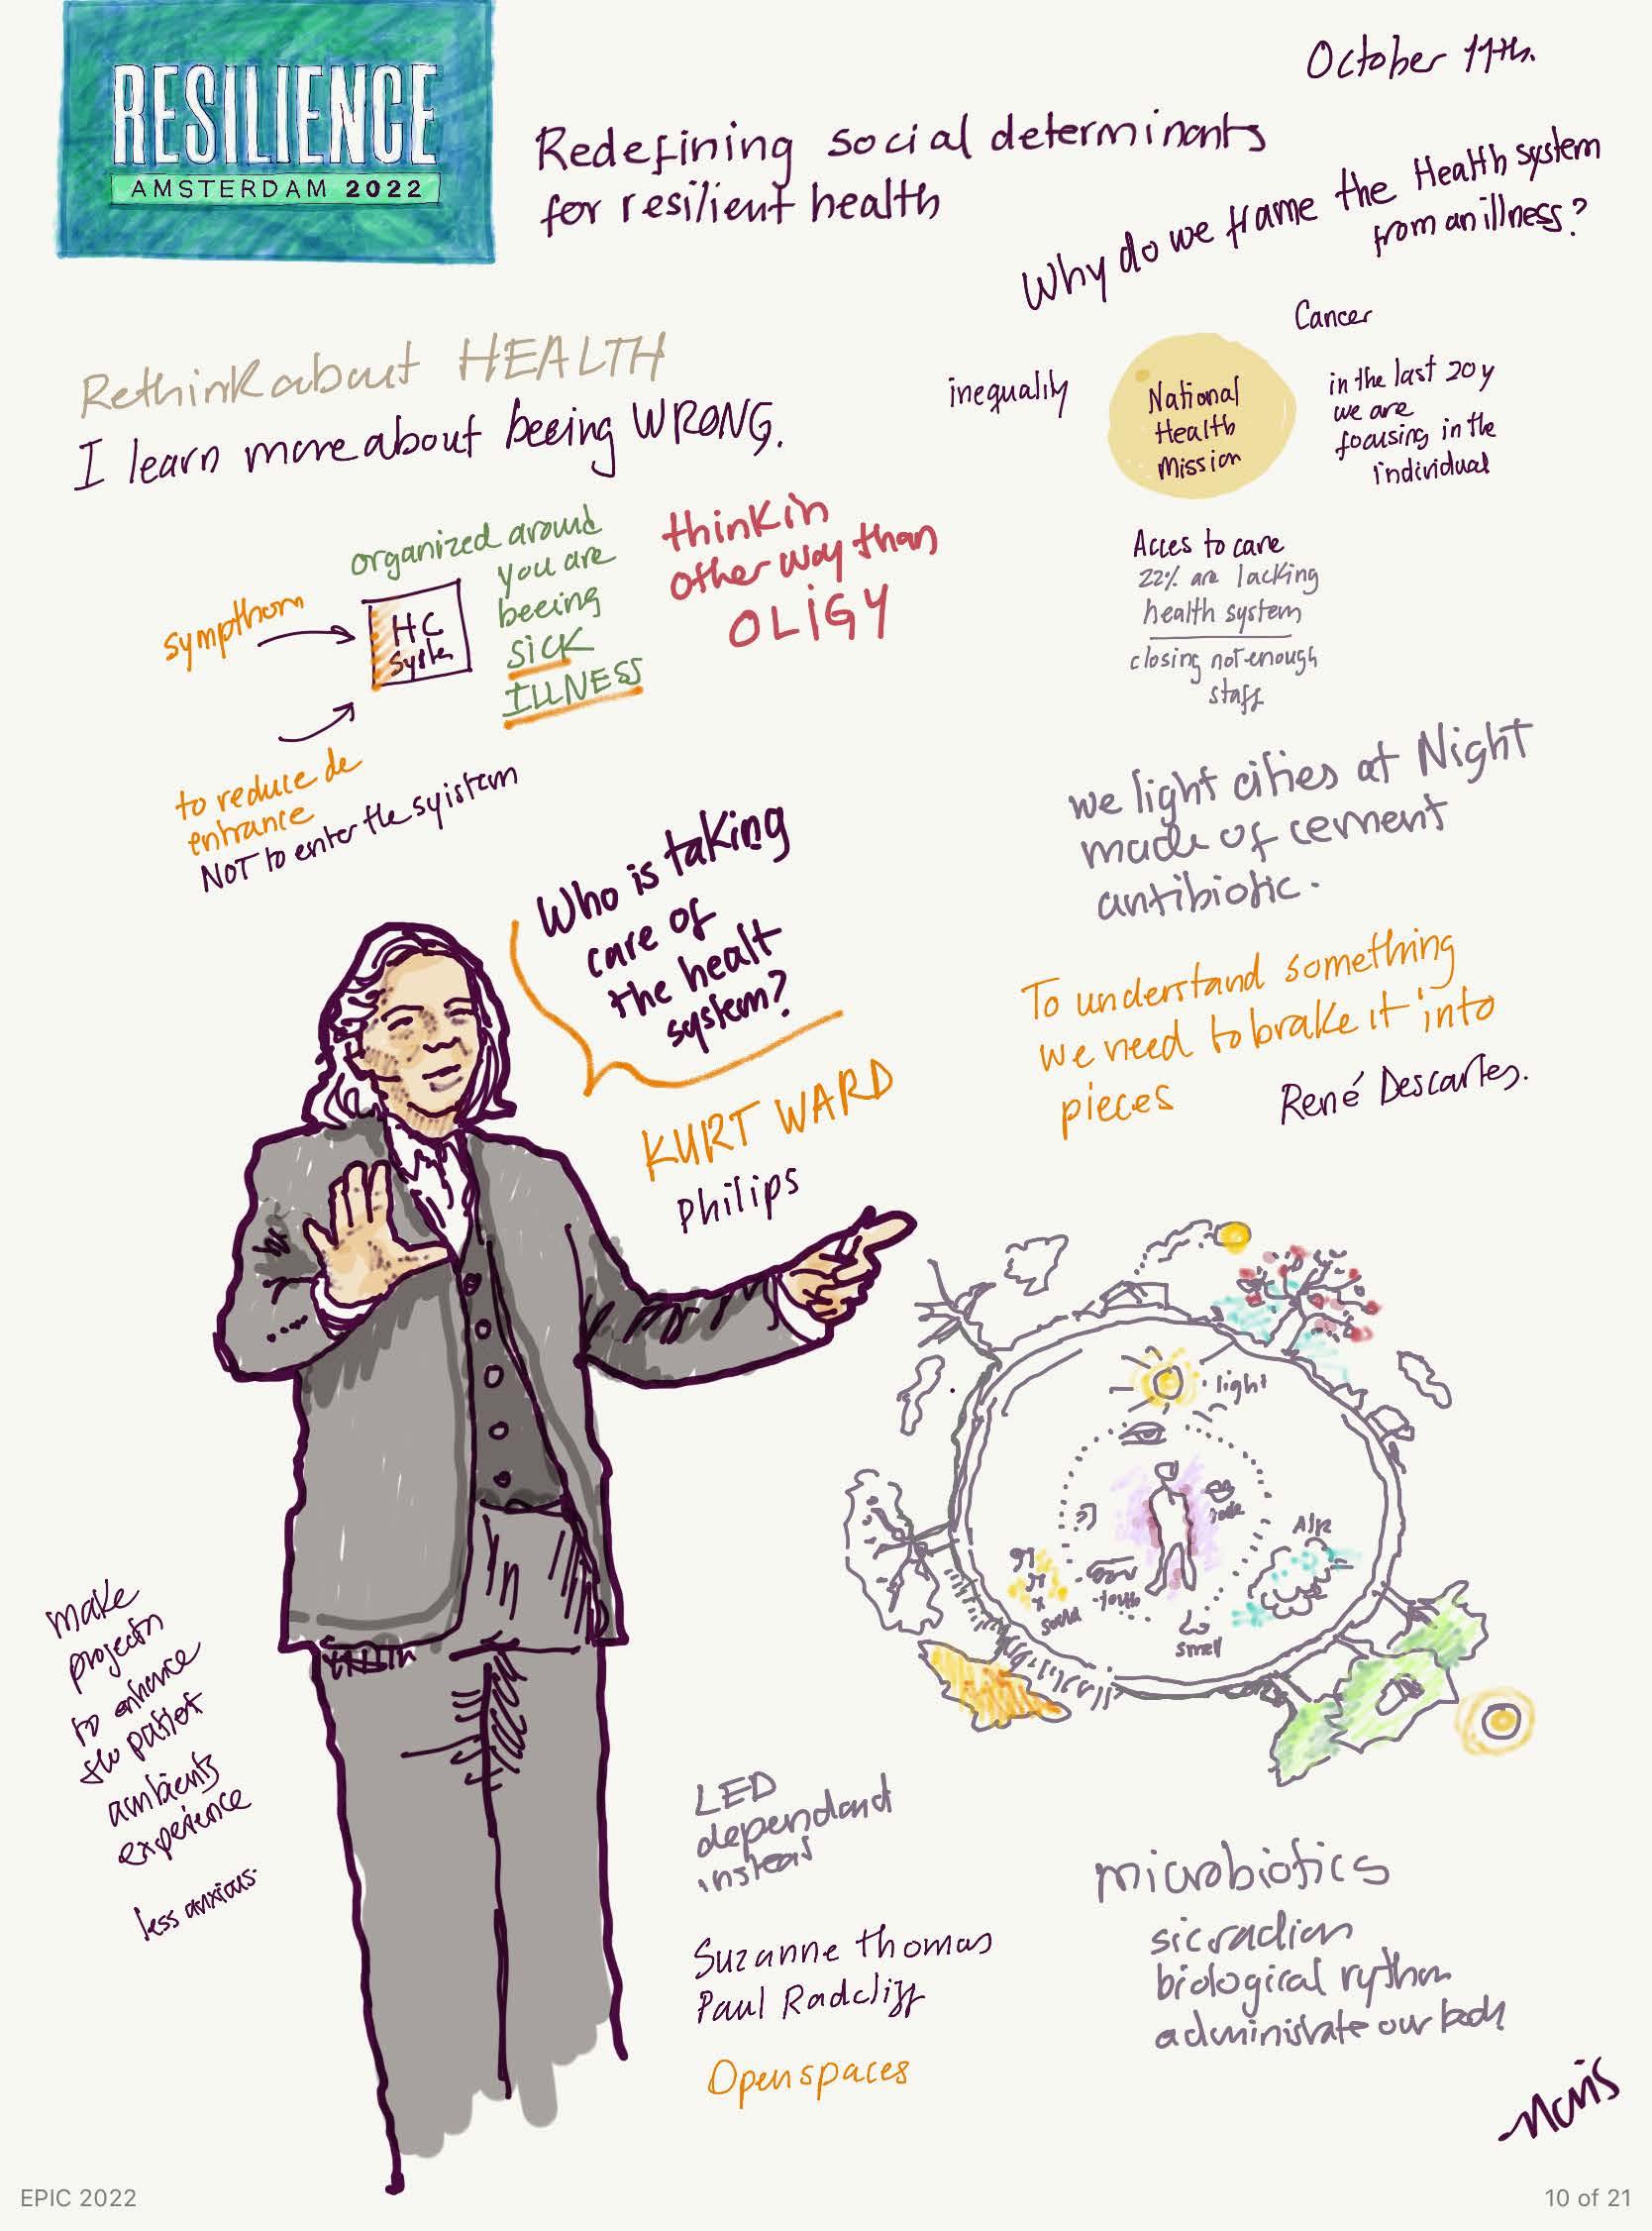 RESILIENCE
AMSTERDAM 2022
October 11th.
Redefining social determinants
for resilient health
Why do we frame the Health system
from an illness?
Rethink about HEALTH
I learn more about beeing WRONG.
Cancer
inequality
National
Health
Mission
in the last 20 y
we are
focusing in the
individual
organized around
you are
beeing
SICK
ILLNESS
think in
other way than
OLIGY
sympthom
HC
System
to reduce de
entrance
NOT to enter the syistem
Acces to care
22% are lacking
health system
closing not enough
staff
we light cities at Night
made of cement
antibiotic.
Who is taking
care of
the healt
system?
KURT WARD
Philips
To understand something
we need to brake it into
pieces
René Descartes.
light
AIR
sound
touth
smell
make
projects
to enhance
the patiet
ambients
experience
less anxious.
LED
dependand
instead
Suzanne Thomas
Paul Radcliff
Openspaces
microbiotics
sicradian
biological rythm
administrate our body
EPIC 2022
10 of 21